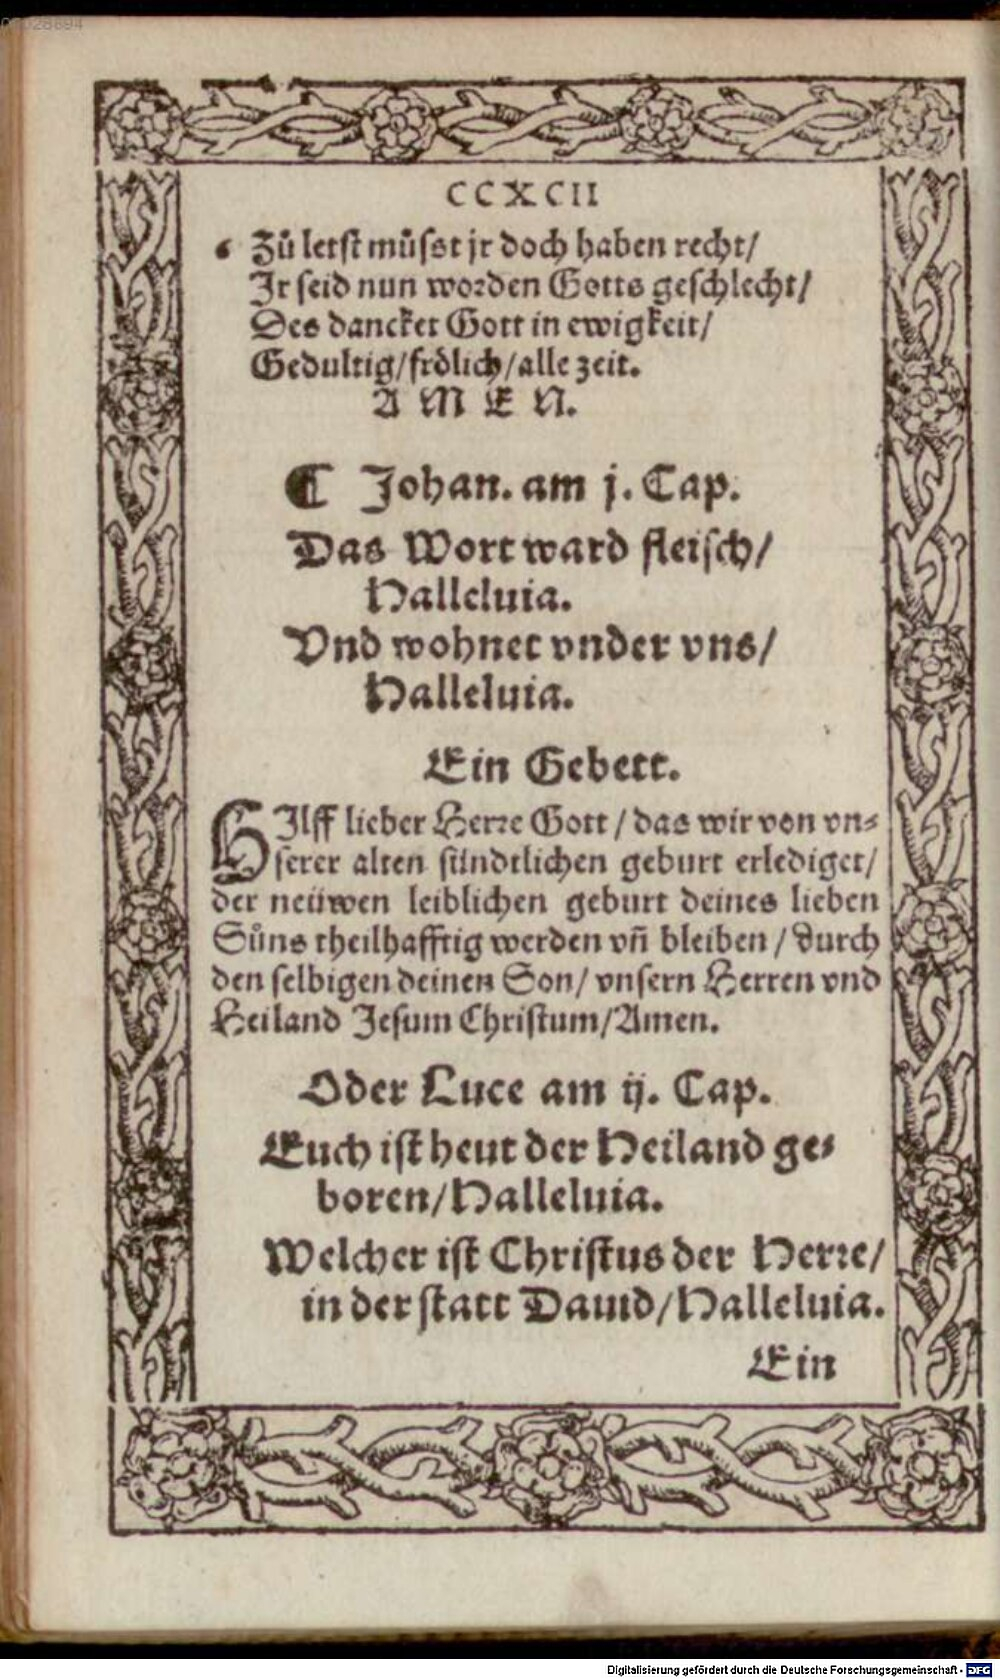 CCXCII
6 Zů letst můsst jr doch haben recht/
Jr seid nun worden Gotts geschlecht/
Des dancket Gott in ewigkeit/
Gedultig/frölich/alle zeit.
A M E N.
C Johan. am j. Cap.
Das Wort ward fleisch/
Halleluia.
Vnd wohnet vnder vns/
Halleluia.
Ein Gebett.
HJlff lieber Herre Gott / das wir von vn⸗
serer alten sündtlichen geburt erlediget/
der neüwen leiblichen geburt deines lieben
Sůns theilhafftig werden vñ bleiben / durch
den selbigen deinen Son/ vnsern Herren vnd
Heiland Jesum Christum/Amen.
Oder Luce am ij. Cap.
Euch ist heut der Heiland ge⸗
boren/Halleluia.
Welcher ist Christus der Herre/
in der statt Dauid/Halleluia.
Ein
Digitalisierung gefördert durch die Deutsche Forschungsgemeinschaft - DFG